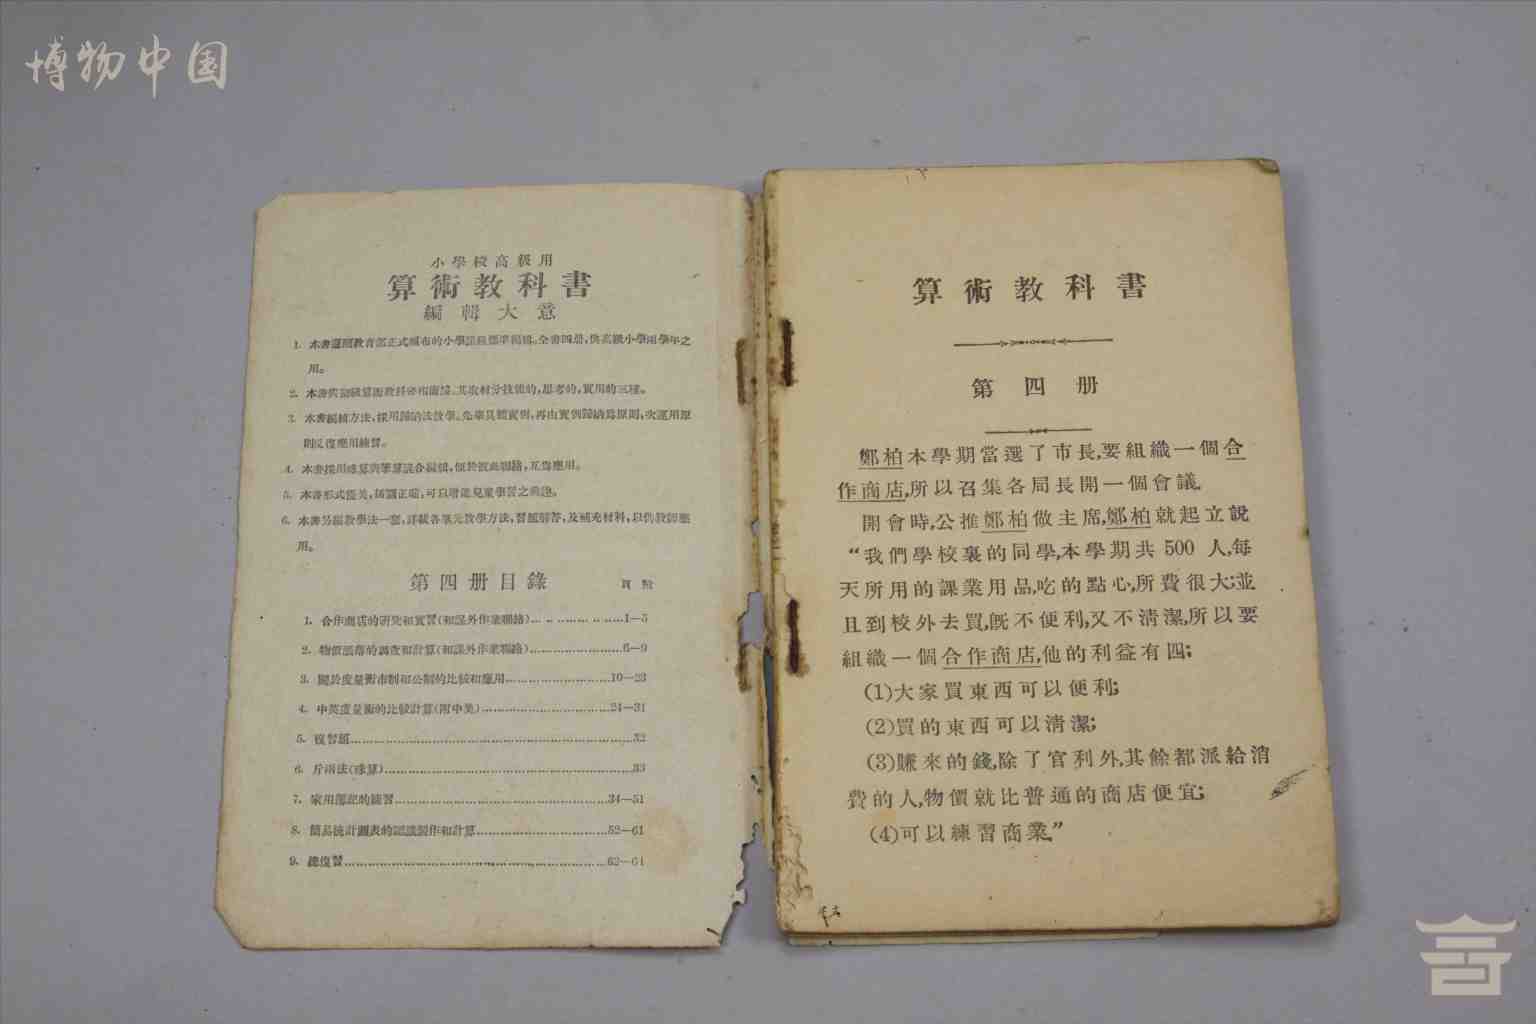 博物中国
小學校高級用
算術教科書
編輯大意
1. 本書遵照教育部正式頒布的小學課程標準編輯。全書四册，供高級小學兩學年之
用。
2. 本書與初級算術教科書相銜接。其取材分技能的，思考的，實用的三種。
3. 本書編輯方法，採用歸納法教學。先舉具體實例，再由實例歸納爲原則，次運用原
則反復應用練習。
4. 本書採用珠算與筆算混合編輯，便於彼此聯絡，互爲應用。
5. 本書形式優美，插圖正確，可以增進兒童學習之興趣。
6. 本書另編教學法一套，詳載各單元教學方法，習題解答，及補充材料，以供教師應
用。
第四册目錄 頁數
1. 合作商店的研究和實習（和課外作業聯絡）……………………1—5
2. 物價漲落的調查和計算（和課外作業聯絡）……………………6—9
3. 關於度量衡市制和公制的比較和應用……………………10—23
4. 中英度量衡的比較計算（附中美）……………………24—31
5. 復習題……………………32
6. 斤兩法（珠算）……………………33
7. 家用簿記的練習……………………34—51
8. 簡易統計圖表的認識製作和計算……………………52—61
9. 總復習……………………62—64
算術教科書
第四册
鄭柏本學期當選了市長，要組織一個合
作商店，所以召集各局長開一個會議。
開會時，公推鄭柏做主席，鄭柏就起立說
“我們學校裏的同學，本學期共500人，每
天所用的課業用品，吃的點心，所費很大；並
且到校外去買，旣不便利，又不清潔，所以要
組織一個合作商店，他的利益有四；
(1)大家買東西可以便利；
(2)買的東西可以清潔；
(3)賺來的錢，除了官利外，其餘都派給消
費的人，物價就比普通的商店便宜；
(4)可以練習商業。”